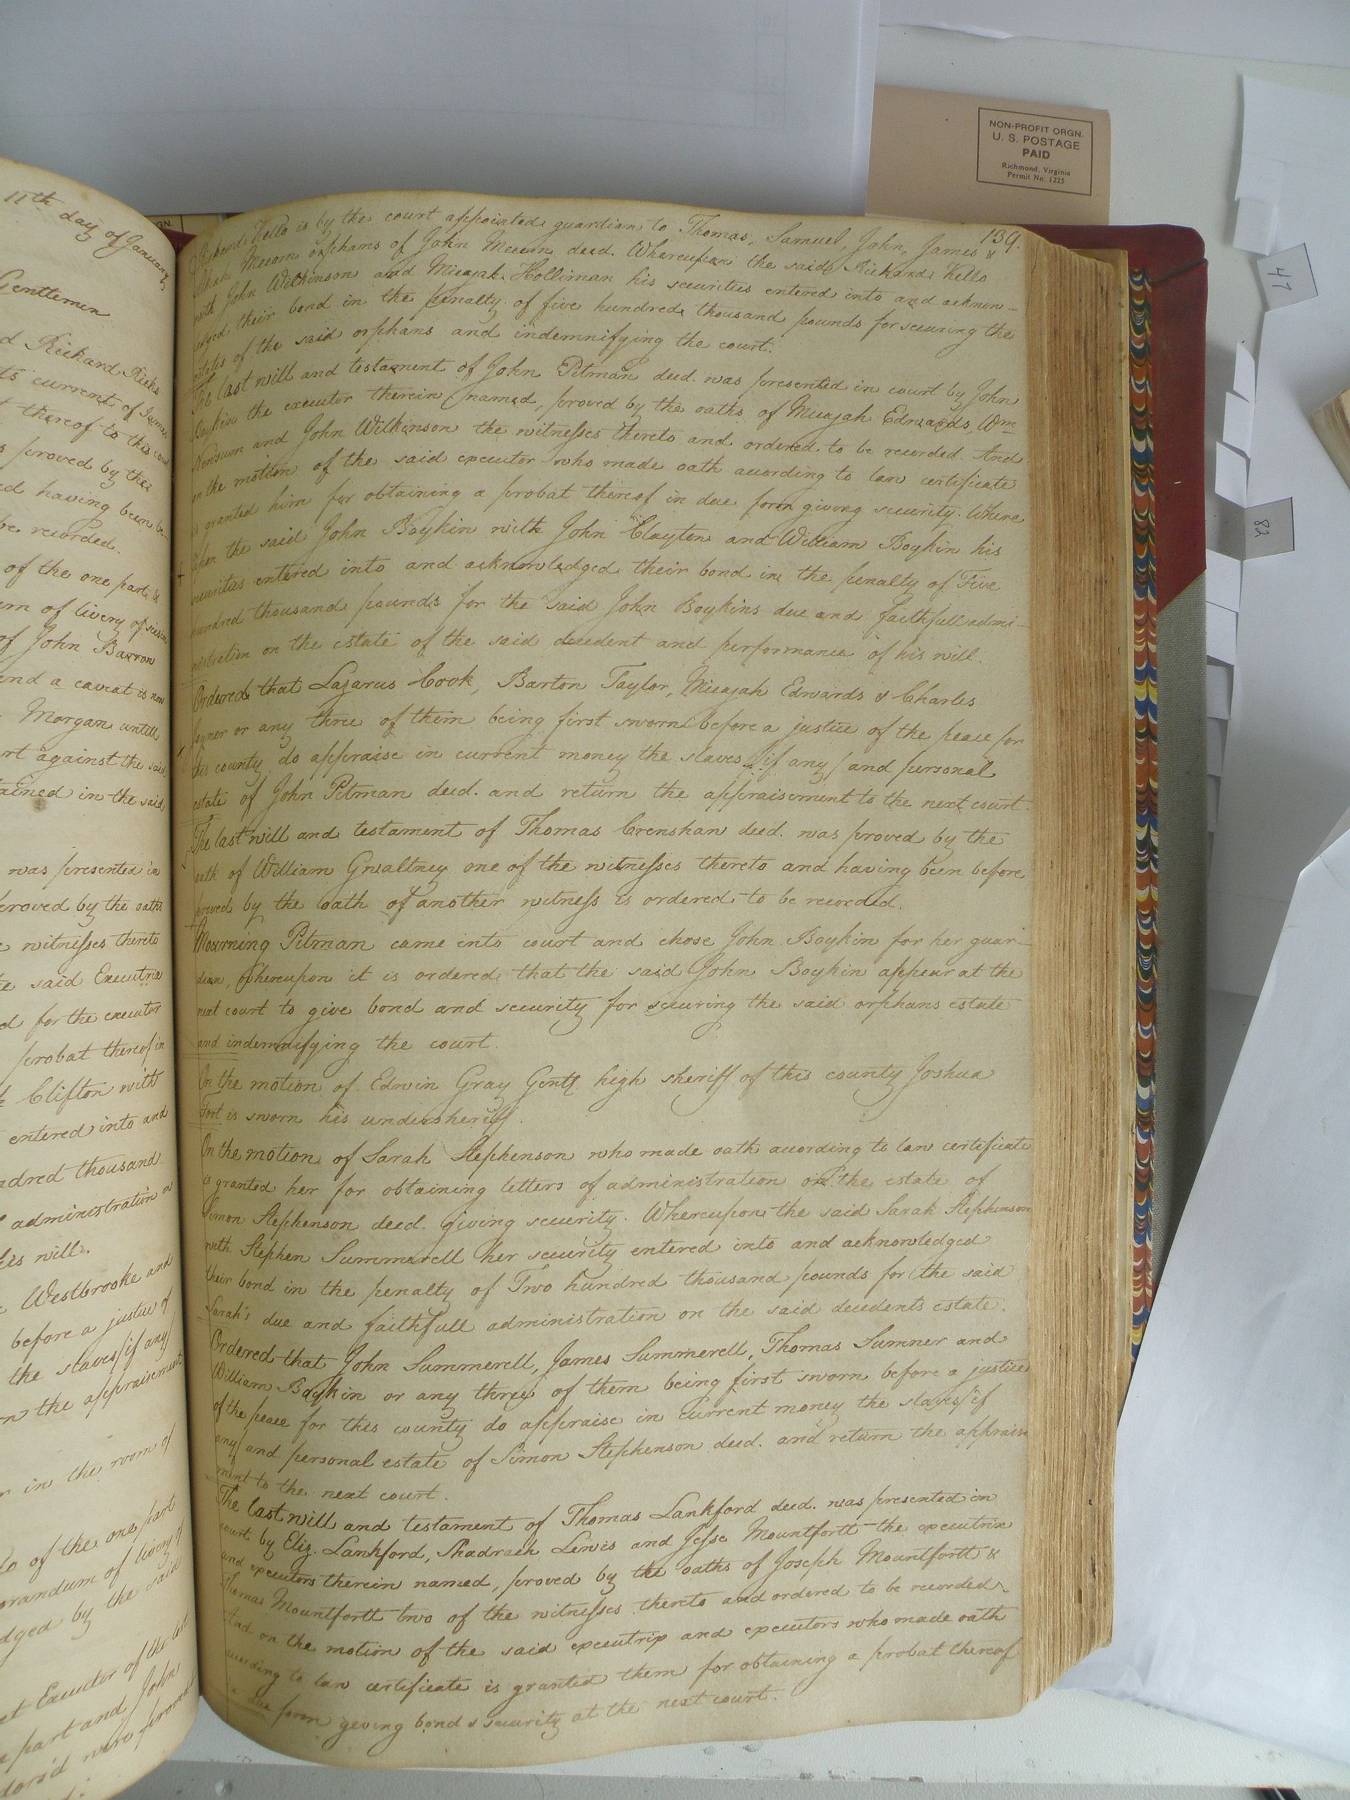 NON-PROFIT ORGN.
U. S. POSTAGE
PAID
Richmond, Virginia
Permit No. 1225
47
82
11th day of January
Gentlemen
d Rickard Ricks
ts current of James
t thereof to this court
s proved by the
ed having been be
be recorded.
of the one part &
um of livery of seisin
of John Barron
and a caveat is now
Morgan untill
rt against the said
tained in the said
was presented in
proved by the oaths
e witnesses thereto
e said Executrix
d for the executor
probat thereof in
Clifton with
entered into and
ndred thousand
administration on
les will.
Westbrooke and
before a justice of
the slaves (if any)
n the appraisement
r in the room of
to of the one part
orandum of livery of
dged by the said
et Executor of the last
e part and John
139.
Kello is by the court appointed guardian to Thomas, Samuel, John, James &
Mecom orphans of John Mecom deed. Whereupon the said Rickard Kello
with John Wilkinson and Micajah Holliman his securities entered into and acknow-
ledged their bond in the penalty of five hundred thousand pounds for securing the
estates of the said orphans and indemnifying the court.
The last will and testament of John Pitman deed. was presented in court by John
Boykin the executor therein named, proved by the oaths of Micajah Edwards, Wm
Newsum and John Wilkinson the witnesses thereto and ordered to be recorded. And
on the motion of the said executor who made oath according to law certificate
is granted him for obtaining a probat thereof in due form giving security. Where
upon the said John Boykin with John Clayton and William Boykin his
securities entered into and acknowledged their bond in the penalty of Five
hundred thousand pounds for the said John Boykins due and faithfull admi-
nistration on the estate of the said decedent and performance of his will.
Ordered that Lazarus Cook, Barton Taylor, Micajah Edwards & Charles
Joyner or any three of them being first sworn before a justice of the peace for
this county do appraise in current money the slaves (if any) and personal
estate of John Pitman deed. and return the appraisement to the next court.
The last will and testament of Thomas Crenshaw deed. was proved by the
oath of William Gwaltney one of the witnesses thereto and having been before
proved by the oath of another witness is ordered to be recorded.
Mourning Pitman came into court and chose John Boykin for her guar-
dian, Whereupon it is ordered that the said John Boykin appear at the
next court to give bond and security for securing the said orphans estate
and indemnifying the court.
On the motion of Edwin Gray Gentl. high sheriff of this county Joshua
Fort is sworn his undersheriff.
On the motion of Sarah Stephenson who made oath according to law certificate
is granted her for obtaining letters of administration on the estate of
Simon Stephenson deed. giving security. Whereupon the said Sarah Stephenson
with Stephen Summerell her security entered into and acknowledged
their bond in the penalty of Two hundred thousand pounds for the said
Sarah's due and faithfull administration on the said decedents estate.
Ordered that John Summerell, James Summerell, Thomas Sumner and
William Boykin or any three of them being first sworn before a justice
of the peace for this county do appraise in current money the slaves (if
any) and personal estate of Simon Stephenson deed. and return the appraise
ment to the next court.
The last will and testament of Thomas Lankford deed. was presented in
court by Eliz. Lankford, Shadrach Lewis and Jesse Mountfortt the executrix
and executors therein named, proved by the oaths of Joseph Mountfortt &
Thomas Mountfortt two of the witnesses thereto and ordered to be recorded.
And on the motion of the said executrix and executors who made oath
according to law certificate is granted them for obtaining a probat thereof
due form giving bond & security at the next court.